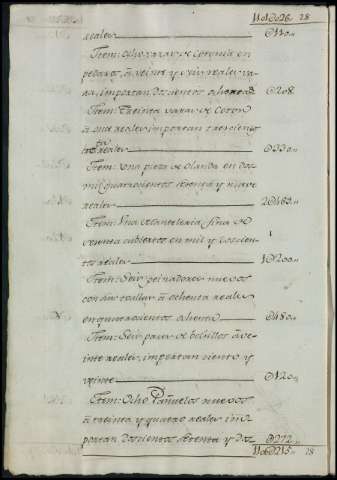 110U026 28
reales U110
Ittem: Ocho varas de Cotonia en
pedazos, a veinte y seis reales va-
ra, importan doscientos ocho rs U208
Ittem: Treinta varas de Coton
a once reales importan trescientos
treinta reales U330
Ittem: Una pieza de olanda en dos
mil quatrocientos ochenta y nueve
reales
Ittem: Una Mantelería fina de
cubiertos en mil y doscien-
tos reales 1U200
Ittem: Seis peinadores nuevos
con sus toallas a ochenta reales
en quatrocientos ochenta U480
Ittem: Seis pares de bolsillos a ve-
inte reales, importan ciento y
veinte U120
Ittem: Ocho Pañuelos nuevos
a treinta y quatro reales im-
portan doscientos setenta y dos U272
28